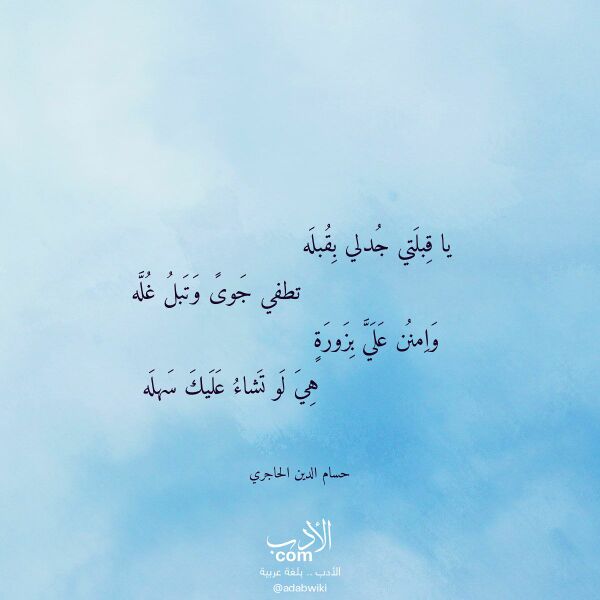 يا قِبلَتي جُدلي بِقُبلَه
تطفي جَوىً وَتَبلُ غُلَّه
وَاِمنُن عَلَيَّ بِزَورَةٍ
هِيَ لَو تَشاءُ عَلَيكَ سَهلَه
حسام الدين الحاجري
الأدب
com
الأدب .. بلغة عربية
@adabwiki